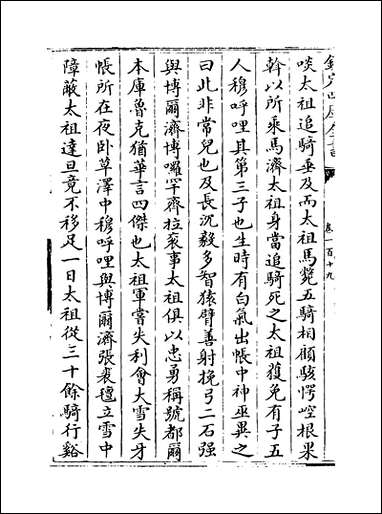 欽定四庫全書
卷一百十九
啖太祖追騎垂及而太祖馬斃五騎相顧駭愕啌根果
幹以所乘馬濟太祖身當追騎死之太祖獲免有子五
人穆呼哩其第三子也生時有白氣出帳中神巫異之
曰此非常兒也及長沉毅多智猿臂善射挽弓二石强
與博爾濟博囉罕齊拉衮事太祖俱以忠勇稱號都爾
本庫魯克猶華言四傑也太祖軍嘗失利會大雪失牙
帳所在夜卧草澤中穆呼哩與博爾濟張裘氊立雪中
障蔽太祖達旦竟不移足一日太祖從三十餘騎行谿